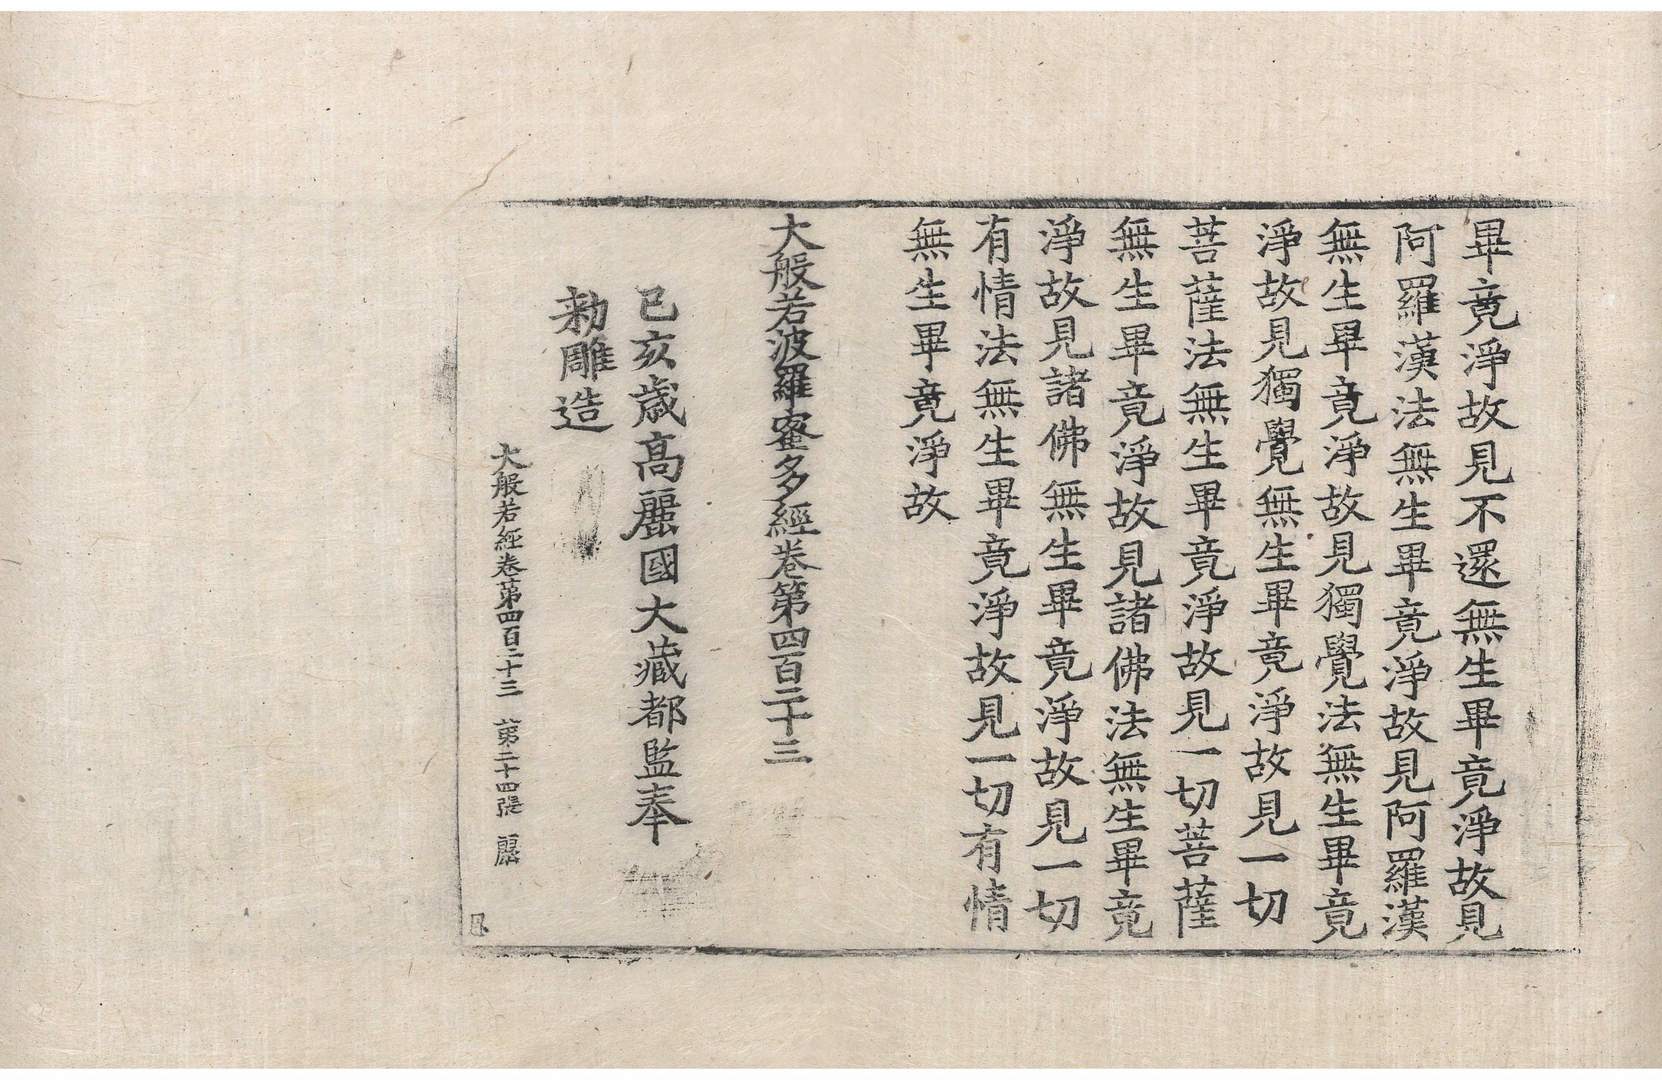 畢竟淨故見不還無生畢竟淨故見
阿羅漢法無生畢竟淨故見阿羅漢
無生畢竟淨故見獨覺法無生畢竟
淨故見獨覺無生畢竟淨故見一切
菩薩法無生畢竟淨故見一切菩薩
無生畢竟淨故見諸佛法無生畢竟
淨故見諸佛無生畢竟淨故見一切
有情法無生畢竟淨故見一切有情
無生畢竟淨故
大般若波羅蜜多經卷第四百二十三
己亥歲高麗國大藏都監奉
勑雕造
大般若經卷第四百二十三 第二十四張 麗